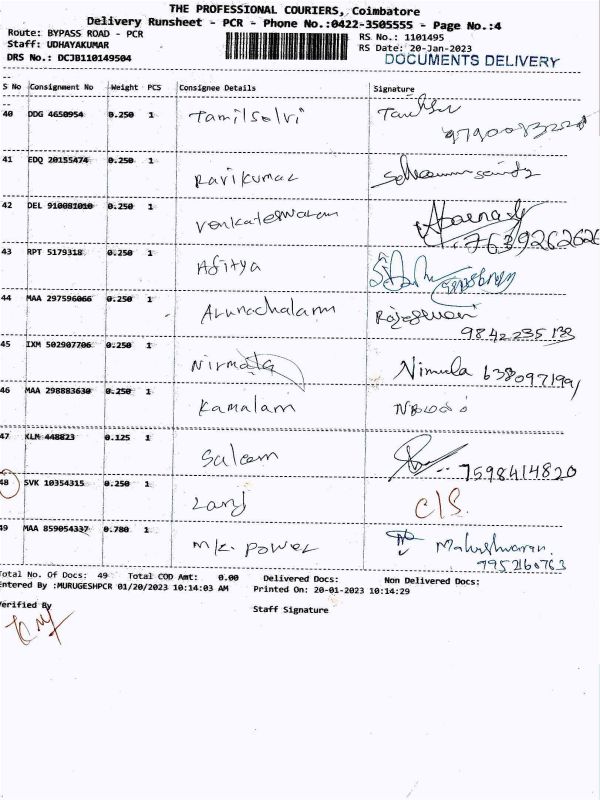 THE PROFESSIONAL COURIERS, Coimbatore
Delivery Runsheet - PCR - Phone No.:0422-3505555 - Page No.:4
Route: BYPASS ROAD - PCR
RS No.: 1101495
Staff: UDHAYAKUMAR
RS Date: 20-Jan-2023
DRS No.: DCJB110149504
DOCUMENTS DELIVERY
S No Consignment No Weight PCS Consignee Details Signature
40 DDG 4650954 0.250 1 Tamilselvi
41 EDQ 20155474 0.250 1 Ravikumar
42 DEL 910081010 0.250 1 Venkateswaran
7639262626
43 RPT 5179318 0.250 1 Aditya
44 MAA 297596066 0.250 1 Arunachalam Rajeswari
9842235133
45 IXM 502907706 0.250 1 Nirmala Nimula
46 MAA 298883630 0.250 1 Kamalam
47 KLM 448823 0.125 1 Saleem 7598414820
48 SVK 10354315 0.250 1 C/S
49 MAA 859054337 0.780 1 M/k. Power Maheshwaran.
7952160763
Total No. Of Docs: 49 Total COD Amt: 0.00 Delivered Docs: Non Delivered Docs:
Entered By :MURUGESHPCR 01/20/2023 10:14:03 AM Printed On: 20-01-2023 10:14:29
Verified By Staff Signature